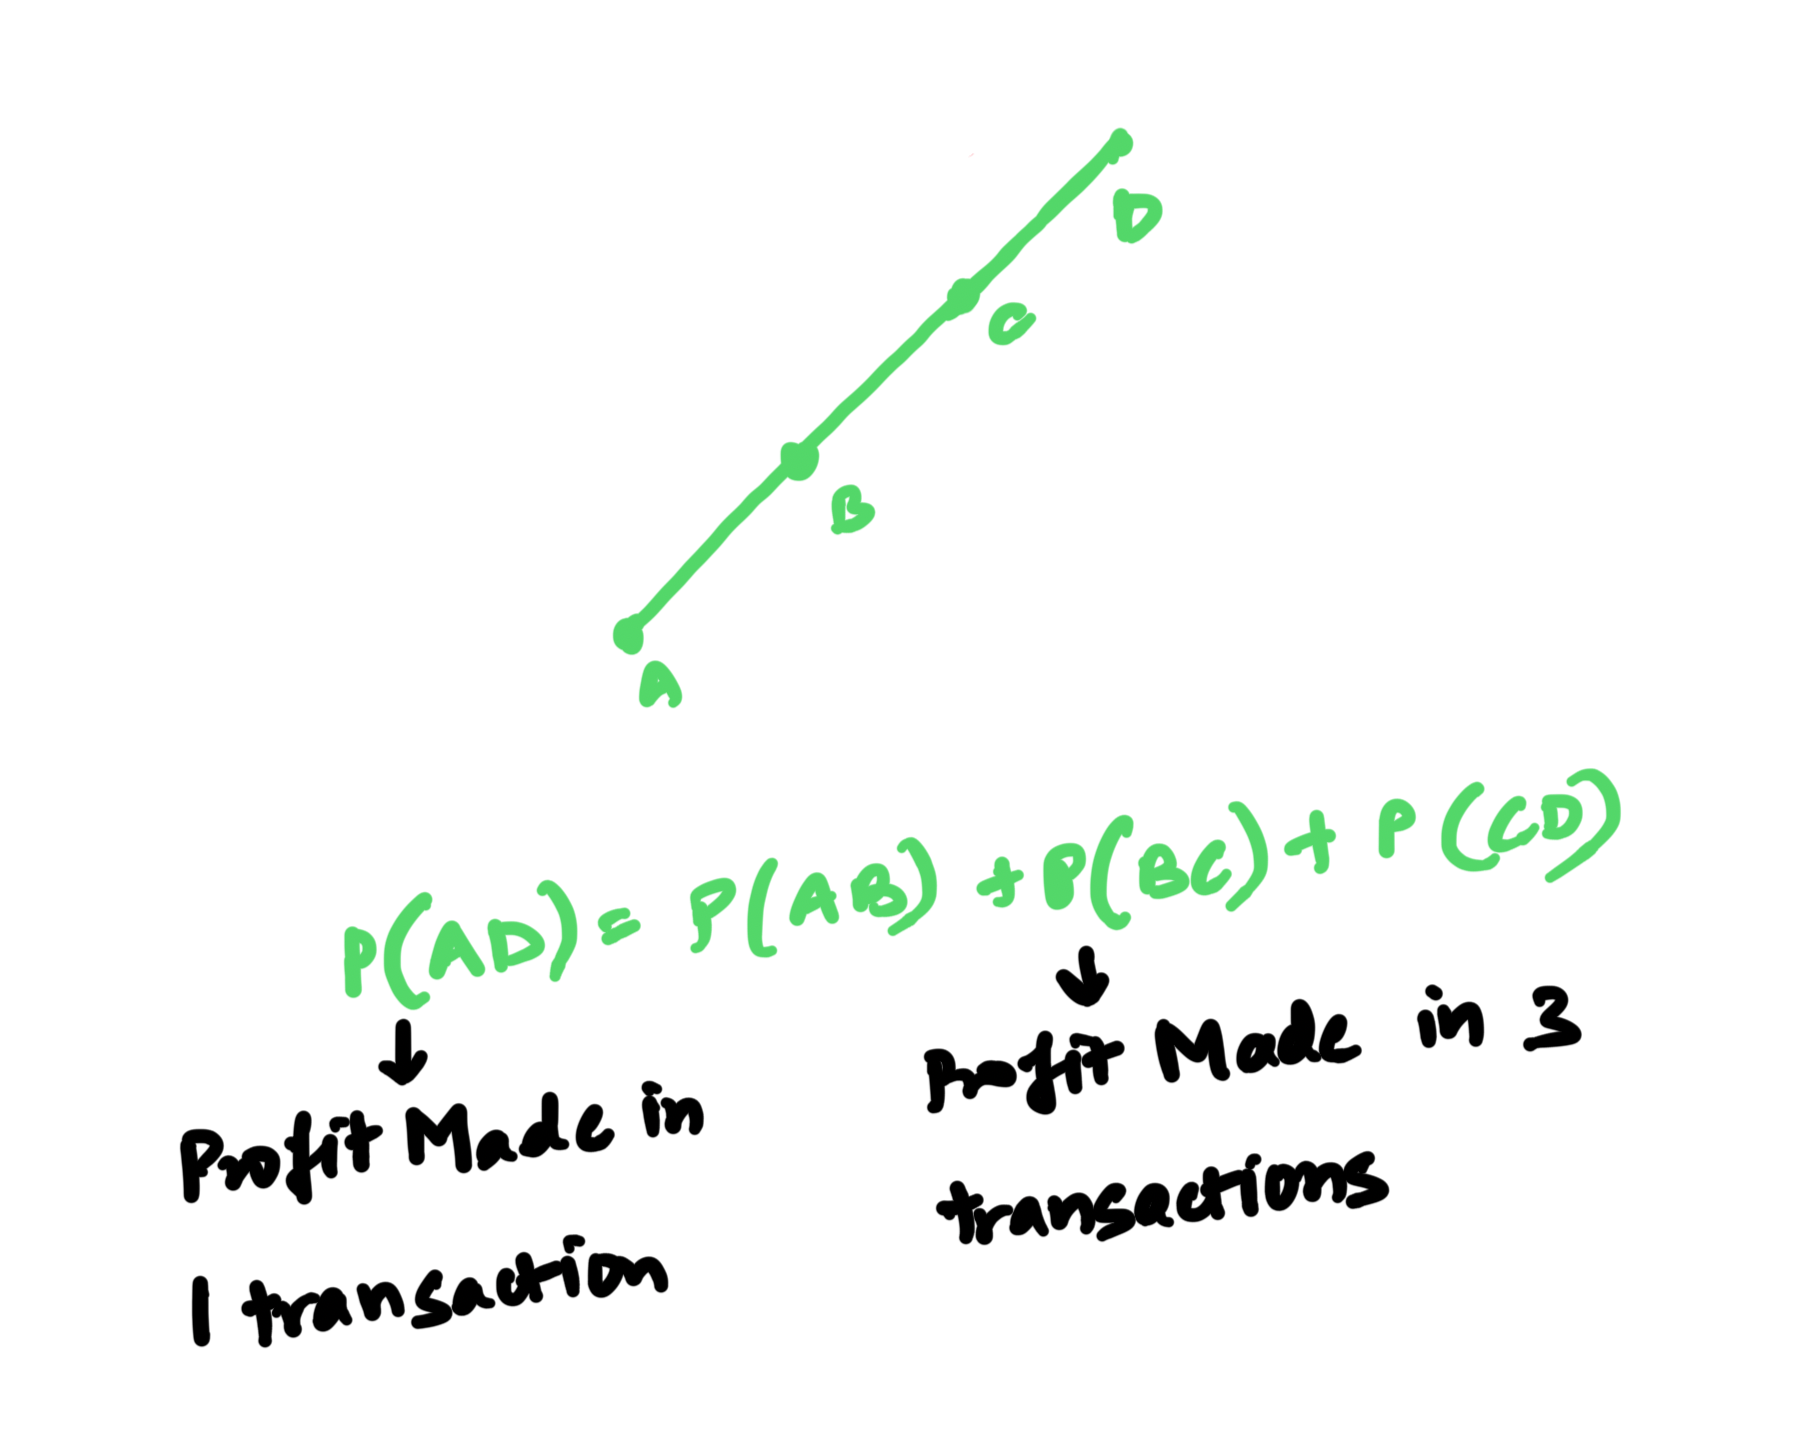 D
C
B
A
P(AD) = P(AB) + P(BC) + P(CD)
Profit Made in
1 transaction
Profit Made in 3
transactions